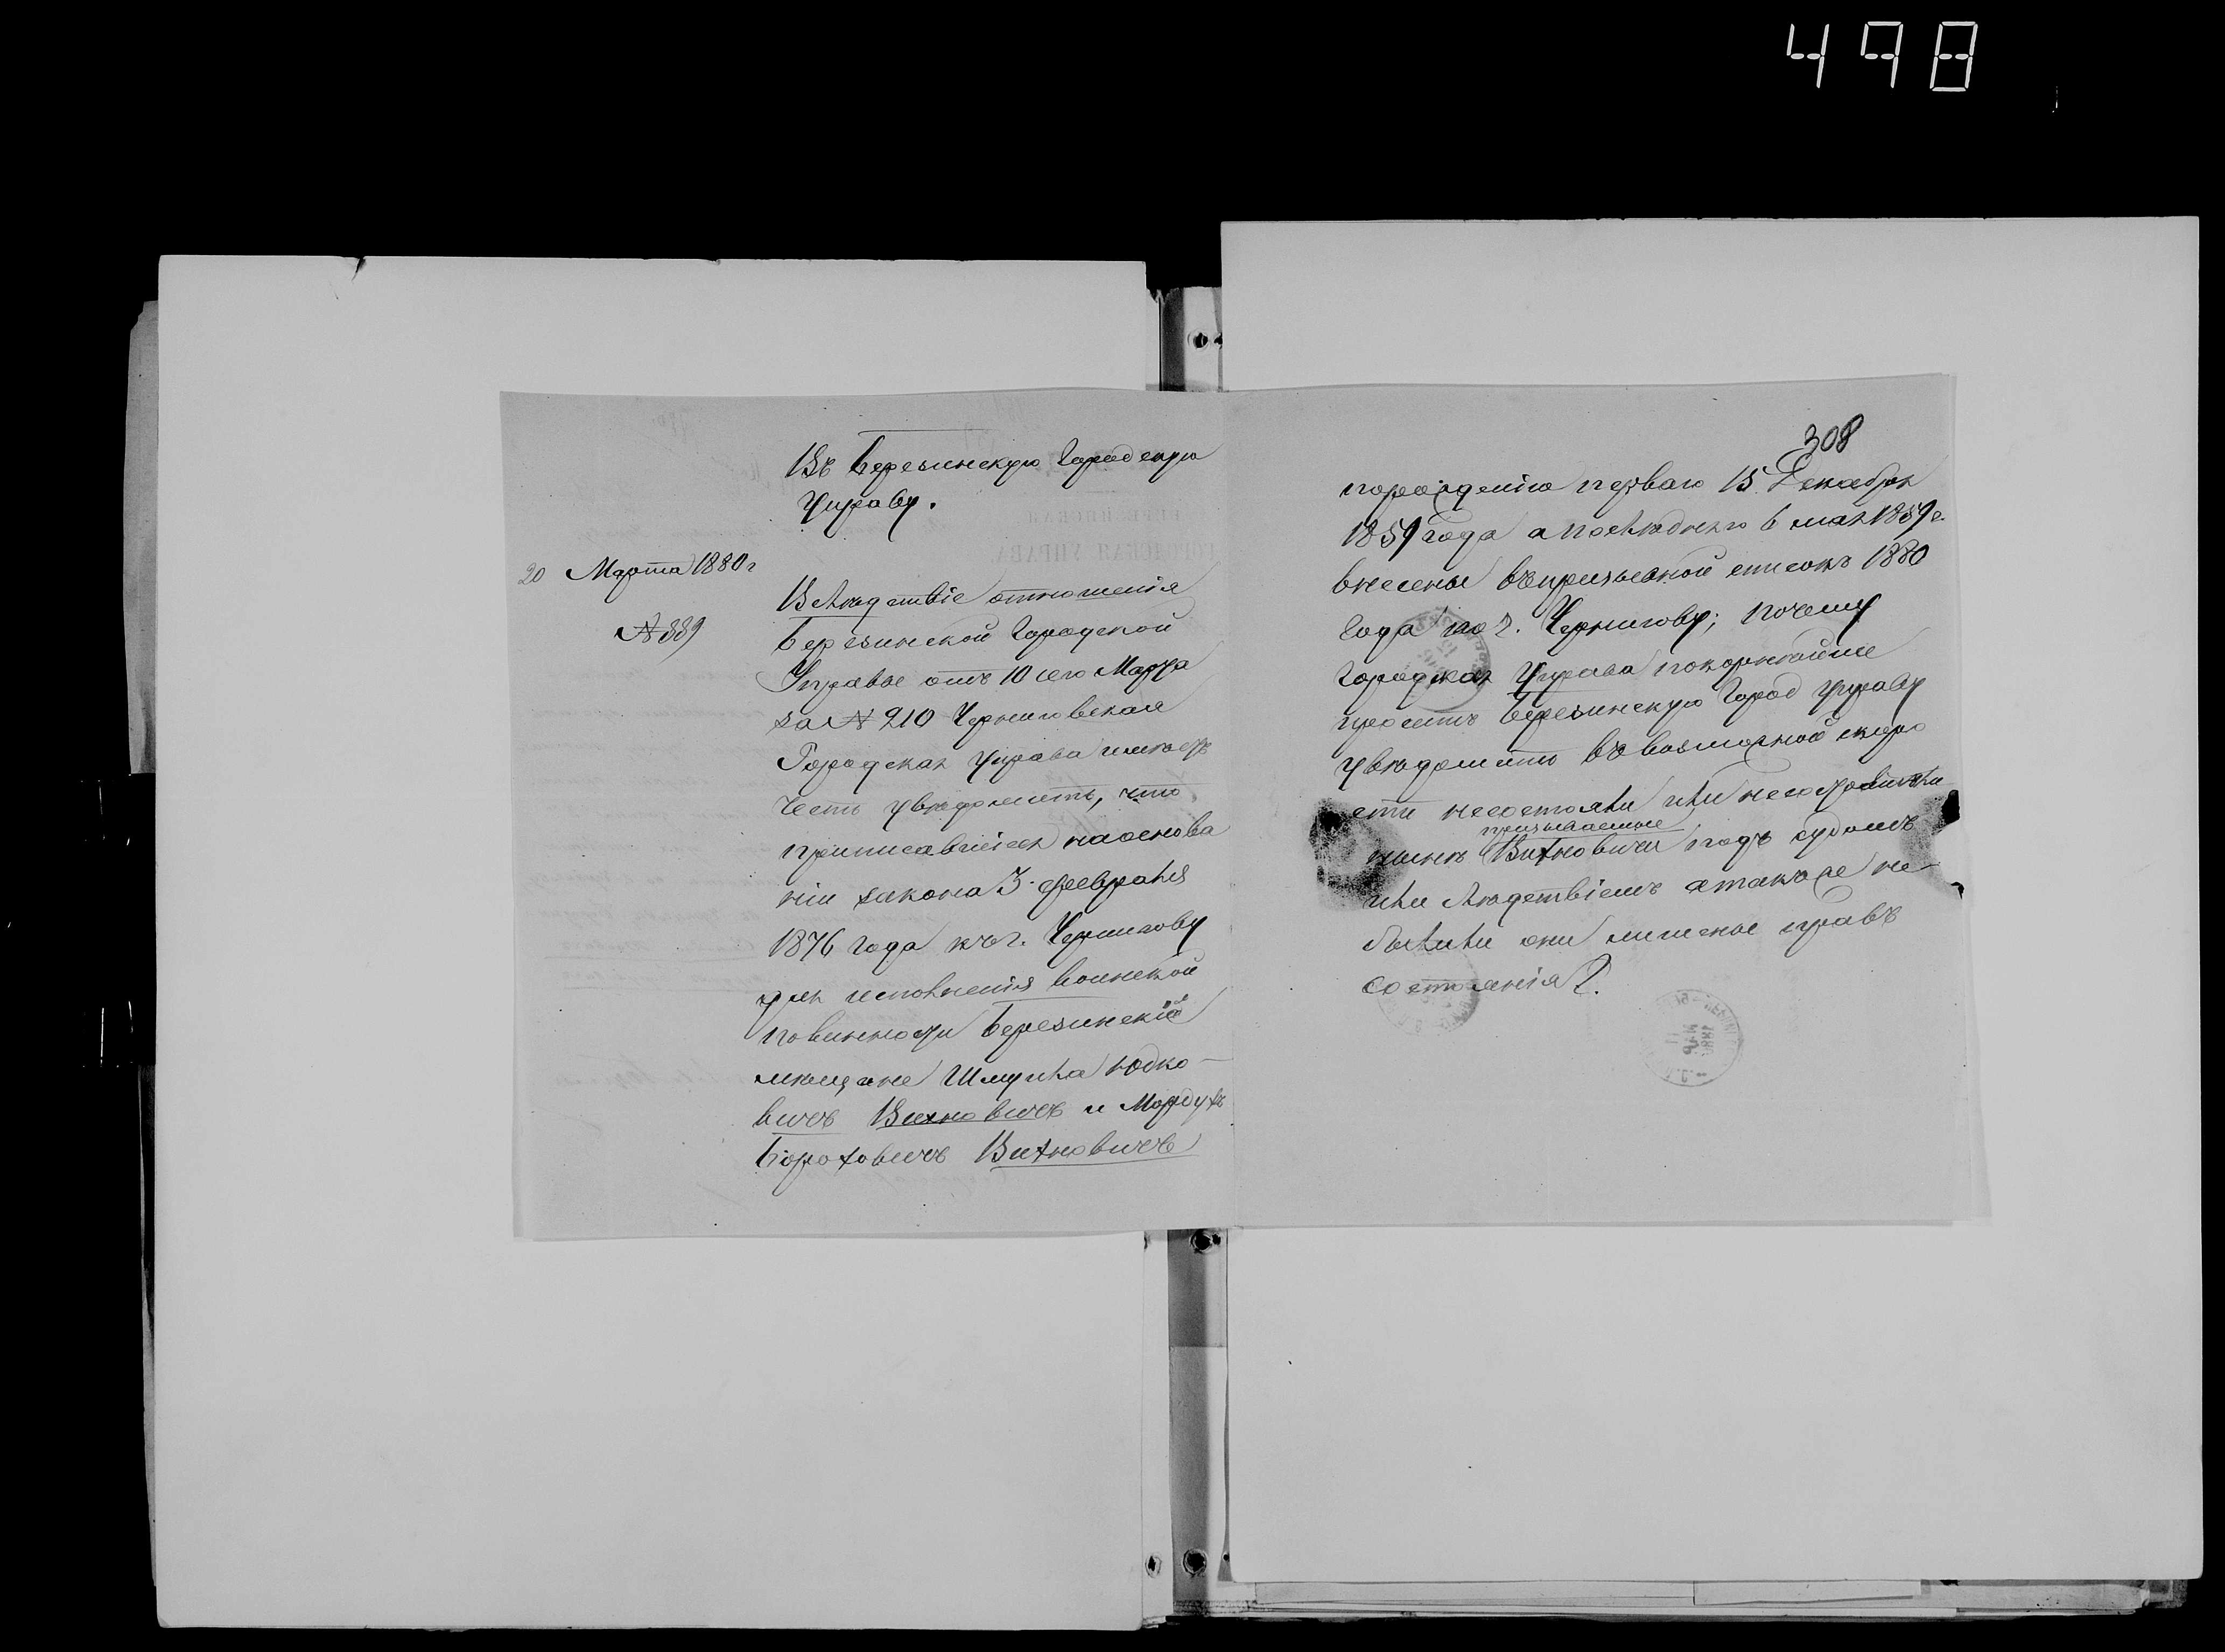 498
308
Въ Березинскую Городскую
Управу.
20 Марта 1880 г
№ 889
Вслѣдствіе отношенія
Березинской Городской
Управы отъ 10 сего Марта
за № 210 Черниговская
Городская Управа имѣетъ
честь увѣдомить, что
приписавшіеся на основа
ніи закона 3 февраля
1876 года къ г. Чернигову
для исполненія воинской
повинности Березинскіе
мѣщане Шмуила Юдко-
вичъ Вихновичъ и Мордухъ
Бороховичъ Вихновичъ
порожденію перваго 15 Декабря
1859 года а послѣдняго 6 мая 1859 г.
внесены въ призывной списокъ 1880
года по г. Чернигову; почему
Городская Управа покорнѣйше
проситъ Березинскую Город Управу
увѣдомить въ возможной скоро
сти несостояли или несостоятъ ли
призываемые
Вихновичи подъ судомъ
или слѣдствіемъ а также не
были ли они лишены правъ
состоянія?